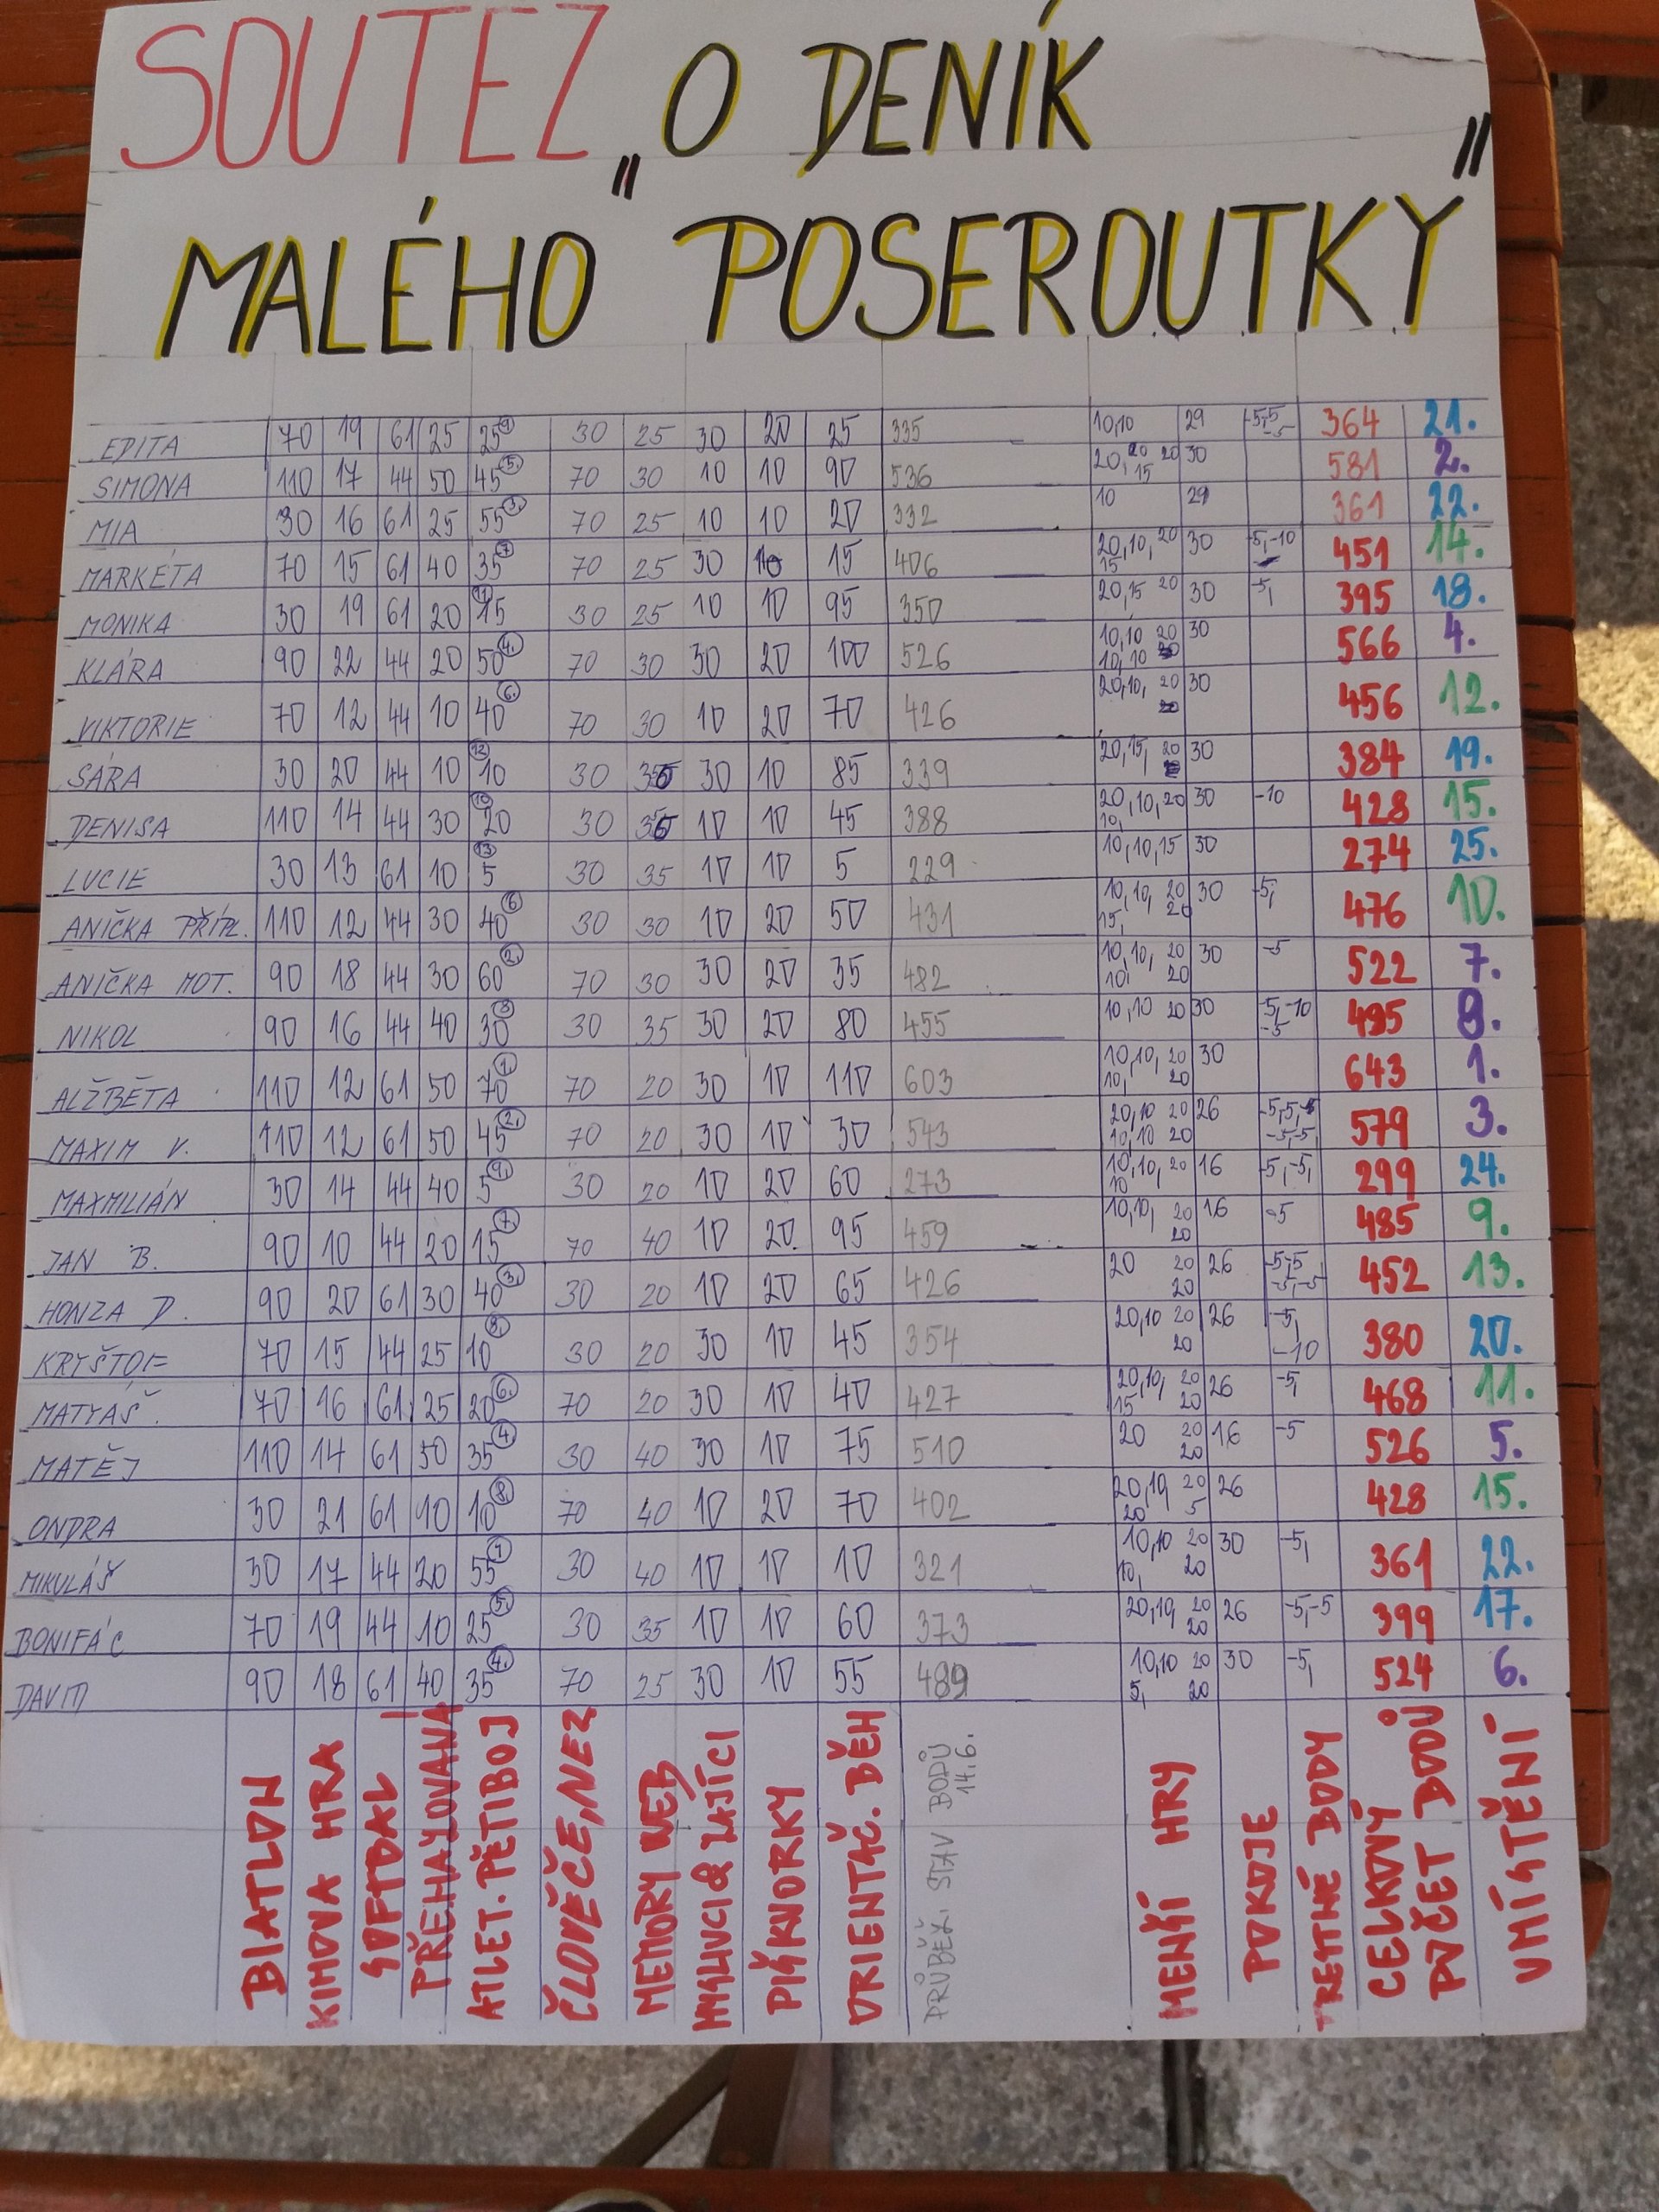 SOUTEZ „O DENÍK
MALÉHO POSEROUTKY"
EDITA 70 19 61 25 25 9 30 25 30 20 25 335 10,10 29 -5,-5 -5 364 21.
SIMONA 110 17 44 50 45 5. 70 30 10 10 90 536 20, 20 20 15 30 581 2.
MIA 30 16 61 25 55 3. 70 25 10 10 20 332 10 29 361 22.
MARKÉTA 70 15 61 40 35 7 70 25 30 10 15 406 20,10, 20 15 30 -5,-10 451 14.
MONIKA 30 19 61 20 15 11 30 25 10 10 95 350 20,15 20 30 -5, 395 18.
KLÁRA 90 22 44 20 50 4. 70 30 30 20 100 526 10,10 20 10,10 30 566 4.
VIKTORIE 70 12 44 10 40 6. 70 30 10 20 70 426 20,10, 20 30 456 12.
SÁRA 30 20 44 10 10 12 30 35 30 10 85 339 20,15, 20 30 384 19.
DENISA 110 14 44 30 20 10 30 35 10 10 45 388 20,10,20 10, 30 -10 428 15.
LUCIE 30 13 61 10 5 13 30 35 10 10 5 229 10,10,15 30 274 25.
ANIČKA PŘÍPL. 110 12 44 30 40 6 30 30 10 20 50 431 10,10, 20 15, 20 30 -5, 476 10.
ANIČKA MOT. 90 18 44 30 60 2. 70 30 30 20 35 482 10,10, 20 10, 20 30 -5 522 7.
NIKOL 90 16 44 40 30 8 30 35 30 20 80 455 10,10 20 30 -5,-10 -5 495 8.
ALŽBĚTA 110 12 61 50 70 1 70 20 30 10 110 603 10,10, 20 10, 20 30 643 1.
MAXIM V. 110 12 61 50 45 2. 70 20 30 10 30 543 20,10 20 10,10 20 26 -5,-5,-5 -5,-5, 579 3.
MAXMILIÁN 30 14 44 40 5 9 30 20 10 20 60 273 10,10, 20 10 16 -5,-5, 299 24.
JAN B. 90 10 44 20 15 7 70 40 10 20. 95 459 10,10, 20 20 16 -5 485 9.
HONZA D. 90 20 61 30 40 3. 30 20 10 20 65 426 20 20 20 26 -5,-5 -5,-5 452 13.
KRYŠTOF 70 15 44 25 10 8. 30 20 30 10 45 354 20,10 20 20 26 -5, -10 380 20.
MATYÁŠ. 70 16 61 25 20 6. 70 20 30 10 40 427 20,10, 20 15 20 26 -5, 468 11.
MATĚJ 110 14 61 50 35 4 30 40 30 10 75 510 20 20 20 16 -5 526 5.
ONDRA 30 21 61 10 10 8. 70 40 10 20 70 402 20,10, 20 20 5 26 428 15.
MIKULÁŠ 30 17 44 20 55 1 30 40 10 10 10 321 10,10 20 10, 20 30 -5, 361 22.
BONIFÁC 70 19 44 10 25 5. 30 35 10 10 60 373 20,10, 20 20 26 -5,-5 399 17.
DAVID 90 18 61 40 35 4. 70 25 30 10 55 489 10,10 20 5, 20 30 -5, 524 6.
BIATLON
KIMOVA HRA
SOFTBAL
PŘEHAZOVANÁ
ATLET. PĚTIBOJ
ČLOVĚČE, NEZ
MEMORY NEB
MYSLIVCI & ZAJÍCI
PIŠKVORKY
ORIENTAČ. BĚH
PRŮBĚŽ. STAV BODŮ
14.6.
MENŠÍ HRY
POKOJE
TRESTNÉ BODY
CELKOVÝ
POČET BODŮ
UMÍSTĚNÍ